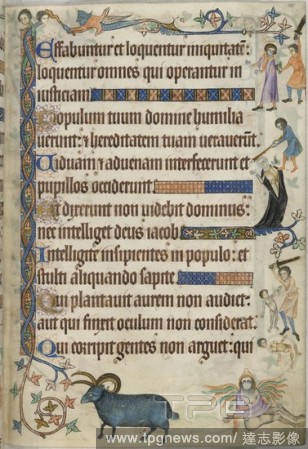 Effabuntur et loquentur iniquitatē:
loquentur omnes qui operantur in
iusticiam
Populum tuum domine humilia
uerunt: ⁊ hereditatem tuam uexauerūt.
Uiduam ⁊ aduenam interfecerunt et
pupillos occiderunt
Et dixerunt non uidebit dominus:
nec intelliget deus iacob
Intelligite insipientes in populo: et
stulti aliquando sapite
Qui plantauit aurem non audiet:
aut qui finxit oculum non considerat.
Qui corripit gentes non arguet: qui
TPG
www.tpgnews.com/ 達志影像